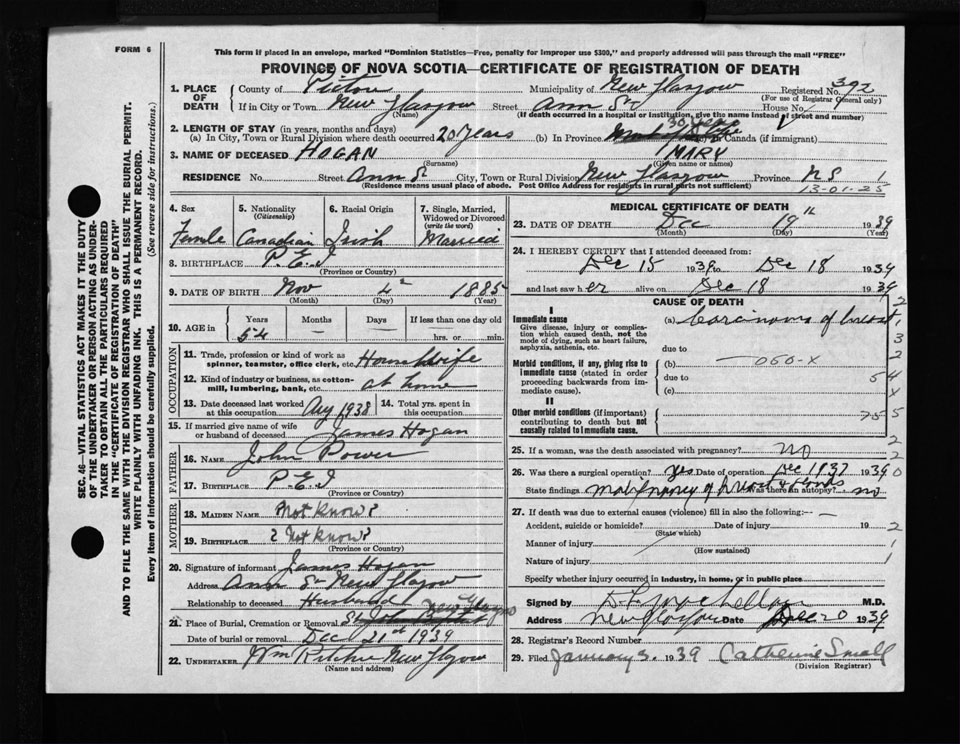 FORM 6
This form if placed in an envelope, marked "Dominion Statistics—Free, penalty for improper use $300," and properly addressed will pass through the mail "FREE"
PROVINCE OF NOVA SCOTIA—CERTIFICATE OF REGISTRATION OF DEATH
SEC. 46—VITAL STATISTICS ACT MAKES IT THE DUTY
OF THE UNDERTAKER OR PERSON ACTING AS UNDER-
TAKER TO OBTAIN ALL THE PARTICULARS REQUIRED
IN THE "CERTIFICATE OF REGISTRATION OF DEATH"
AND TO FILE THE SAME WITH THE DIVISION REGISTRAR WHO SHALL ISSUE THE BURIAL PERMIT.
WRITE PLAINLY WITH UNFADING INK. THIS IS A PERMANENT RECORD.
Every item of information should be carefully supplied. (See reverse side for instructions.)
1. PLACE OF DEATH County of Pictou Municipality of New Glasgow Registered No. 392
(For use of Registrar General only)
If in City or Town New Glasgow Street Ann St House No.
(Name) (If death occurred in a hospital or institution, give the name instead of street and number)
2. LENGTH OF STAY (in years, months and days)
(a) In City, Town or Rural Division where death occurred 20 Years (b) In Province 30 years (c) Canada (if immigrant)
3. NAME OF DECEASED HOGAN MARY
(Surname) (Given name or names)
RESIDENCE No. Street Ann St City, Town or Rural Division New Glasgow Province N S 1
(Residence means usual place of abode. Post Office Address for residents in rural parts not sufficient) 13-01-25
4. Sex 5. Nationality (Citizenship) 6. Racial Origin 7. Single, Married, Widowed or Divorced (write the word)
Female Canadian Irish Married
8. BIRTHPLACE P.E.I
(Province or Country)
9. DATE OF BIRTH Nov 4th 1885
(Month) (Day) (Year)
10. AGE in Years Months Days If less than one day old
54 — — hrs. or min.
OCCUPATION
11. Trade, profession or kind of work as spinner, teamster, office clerk, etc. Housewife
12. Kind of industry or business, as cotton-mill, lumbering, bank, etc. at home
13. Date deceased last worked at this occupation Aug 1938 14. Total yrs. spent in this occupation
15. If married give name of wife or husband of deceased James Hogan
FATHER
16. Name John Power
17. Birthplace P.E.I
(Province or Country)
MOTHER
18. Maiden Name not know?
19. Birthplace ? Not know?
(Province or Country)
20. Signature of informant James Hogan
Address Ann St New Glasgow
Relationship to deceased Husband
21. Place of Burial, Cremation or Removal St John Baptist New Glasgow
Date of burial or removal Dec 21st 1939
22. UNDERTAKER Wm Ritchie New Glasgow
(Name and address)
MEDICAL CERTIFICATE OF DEATH
23. DATE OF DEATH Dec 19th 1939
(Month) (Day) (Year)
24. I HEREBY CERTIFY that I attended deceased from:
Dec 15 1939 to Dec 18 1939
and last saw her alive on Dec 18 1939
CAUSE OF DEATH
I
Immediate cause (a) Carcinoma of breast
Give disease, injury or complication which caused death, not the mode of dying, such as heart failure, asphyxia, asthenia, etc.
due to
Morbid conditions, if any, giving rise to immediate cause (stated in order proceeding backwards from immediate cause). (b) 050-X
due to 5
(c)
II
Other morbid conditions (if important) contributing to death but not causally related to immediate cause. 75
25. If a woman, was the death associated with pregnancy? no
26. Was there a surgical operation? yes Date of operation Dec 1937 1939
State findings malignancy of breast & glands Was there an autopsy? no
27. If death was due to external causes (violence) fill in also the following:— —
Accident, suicide or homicide? Date of injury 19
(State which)
Manner of injury
(How sustained)
Nature of injury
Specify whether injury occurred in industry, in home, or in public place
Signed by M.D.
Address New Glasgow Date Dec 20 1939
28. Registrar's Record Number
29. Filed January 3. 1939 Catherine Small
(Division Registrar)